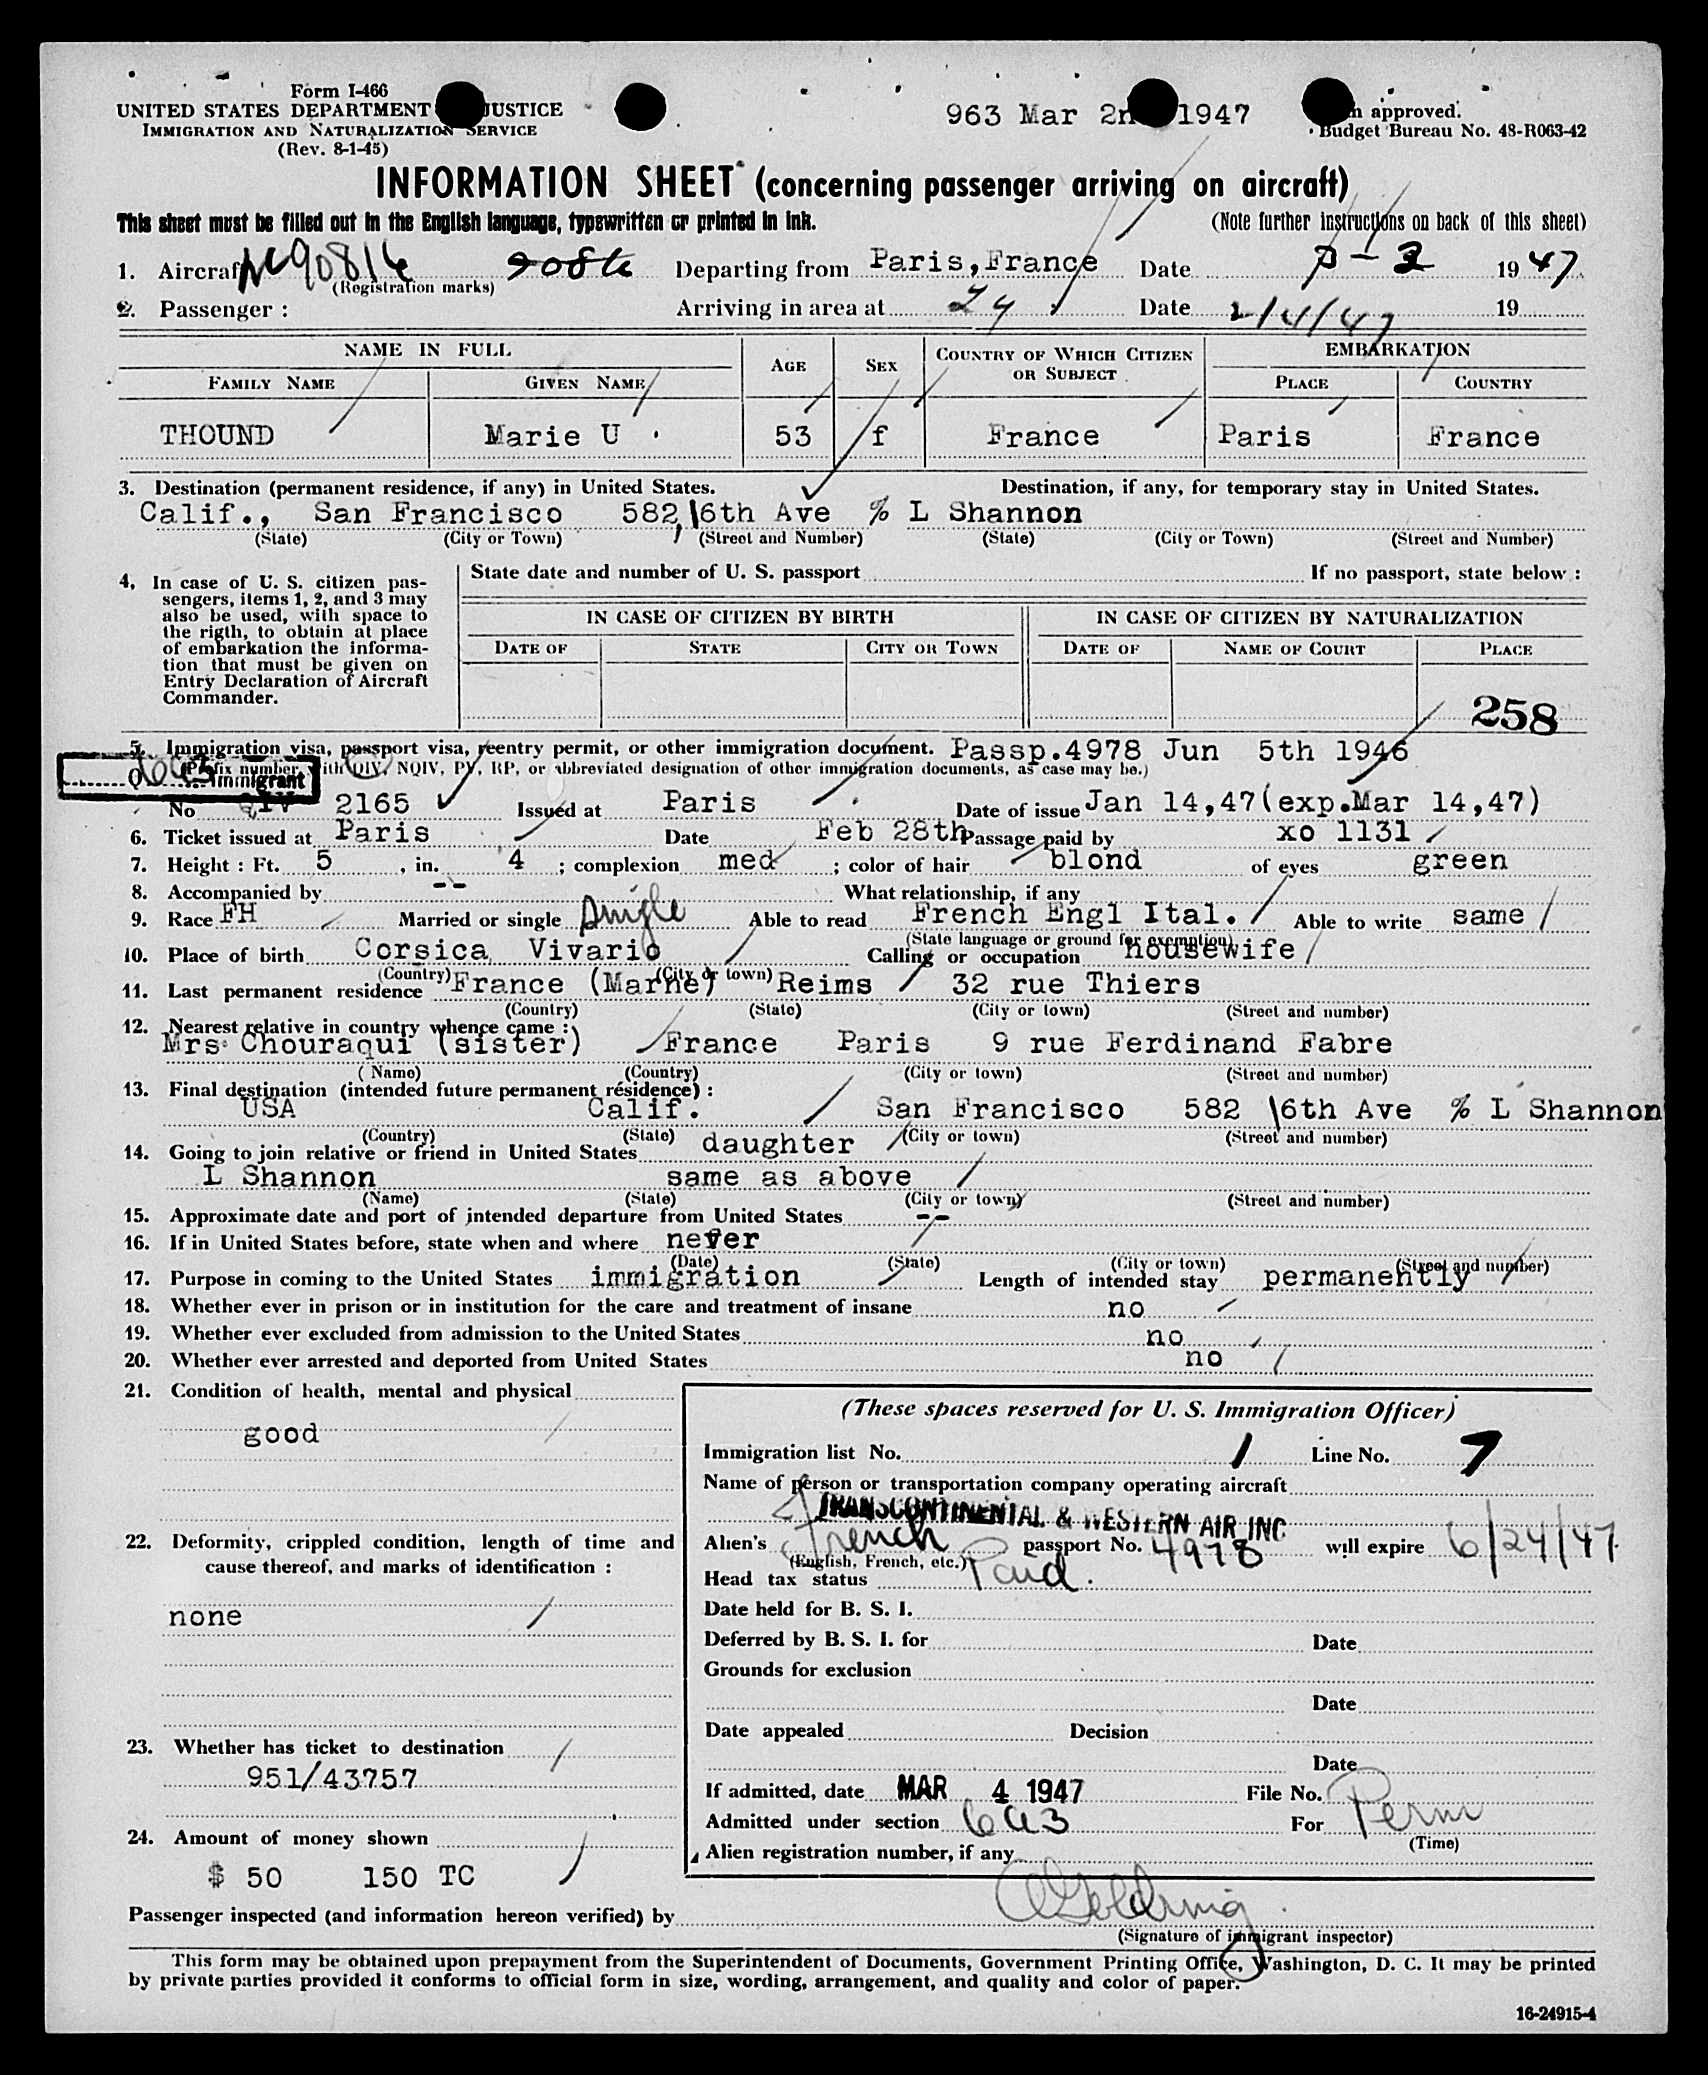 Form I-466
UNITED STATES DEPARTMENT JUSTICE
IMMIGRATION AND NATURALIZATION SERVICE
(Rev. 8-1-45)
963 Mar 2n 1947
approved.
Budget Bureau No. 48-R063-42
INFORMATION SHEET (concerning passenger arriving on aircraft)
This sheet must be filled out in the English language, typewritten or printed in ink.
(Note further instructions on back of this sheet)
1. Aircraft NC90814 Departing from Paris, France Date 3-2 1947
(Registration marks)
2. Passenger: Arriving in area at Date 19
NAME IN FULL AGE SEX COUNTRY OF WHICH CITIZEN OR SUBJECT EMBARKATION
FAMILY NAME GIVEN NAME PLACE COUNTRY
THOUND Marie U 53 f France Paris France
3. Destination (permanent residence, if any) in United States. Destination, if any, for temporary stay in United States.
Calif., San Francisco 582,16th Ave % L Shannon
(State) (City or Town) (Street and Number) (State) (City or Town) (Street and Number)
4, In case of U. S. citizen pas-
sengers, items 1, 2, and 3 may
also be used, with space to
the rigth, to obtain at place
of embarkation the informa-
tion that must be given on
Entry Declaration of Aircraft
Commander.
State date and number of U. S. passport If no passport, state below:
IN CASE OF CITIZEN BY BIRTH IN CASE OF CITIZEN BY NATURALIZATION
DATE OF STATE CITY OR TOWN DATE OF NAME OF COURT PLACE
258
5. Immigration visa, passport visa, reentry permit, or other immigration document. Passp.4978 Jun 5th 1946
(Prefix number with QIV, NQIV, PV, RP, or abbreviated designation of other immigration documents, as case may be.)
Q Immigrant
No QIV 2165 Issued at Paris Date of issue Jan 14,47(exp.Mar 14,47)
6. Ticket issued at Paris Date Feb 28th Passage paid by xo 1131
7. Height: Ft. 5, in. 4; complexion med; color of hair blond of eyes green
8. Accompanied by -- What relationship, if any
9. Race FH Married or single Single Able to read French Engl Ital. Able to write same
(State language or ground for exemption)
10. Place of birth Corsica Vivario Calling or occupation housewife
(Country) (City or town)
11. Last permanent residence France (Marne) Reims 32 rue Thiers
(Country) (State) (City or town) (Street and number)
12. Nearest relative in country whence came:
Mrs Chouraqui (sister) France Paris 9 rue Ferdinand Fabre
(Name) (Country) (City or town) (Street and number)
13. Final destination (intended future permanent résidence):
USA Calif. San Francisco 582 16th Ave % L Shannon
(Country) (State) (City or town) (Street and number)
14. Going to join relative or friend in United States daughter
L Shannon same as above
(Name) (State) (City or town) (Street and number)
15. Approximate date and port of intended departure from United States --
16. If in United States before, state when and where never
(Date) (State) (City or town) (Street and number)
17. Purpose in coming to the United States immigration Length of intended stay permanently
18. Whether ever in prison or in institution for the care and treatment of insane no
19. Whether ever excluded from admission to the United States no
20. Whether ever arrested and deported from United States no
21. Condition of health, mental and physical
good
22. Deformity, crippled condition, length of time and
cause thereof, and marks of identification:
none
23. Whether has ticket to destination
951/43757
24. Amount of money shown
$ 50 150 TC
(These spaces reserved for U. S. Immigration Officer)
Immigration list No. 1 Line No. 7
Name of person or transportation company operating aircraft
TRANSCONTINENTAL & WESTERN AIR INC
Alien's French passport No. 4978 will expire 6/24/47
(English, French, etc.)
Head tax status Paid.
Date held for B. S. I.
Deferred by B. S. I. for Date
Grounds for exclusion
Date
Date appealed Decision
Date
If admitted, date MAR 4 1947 File No.
Admitted under section 6a3 For Perm
(Time)
Alien registration number, if any
Passenger inspected (and information hereon verified) by
(Signature of immigrant inspector)
This form may be obtained upon prepayment from the Superintendent of Documents, Government Printing Office, Washington, D. C. It may be printed
by private parties provided it conforms to official form in size, wording, arrangement, and quality and color of paper.
16-24915-4